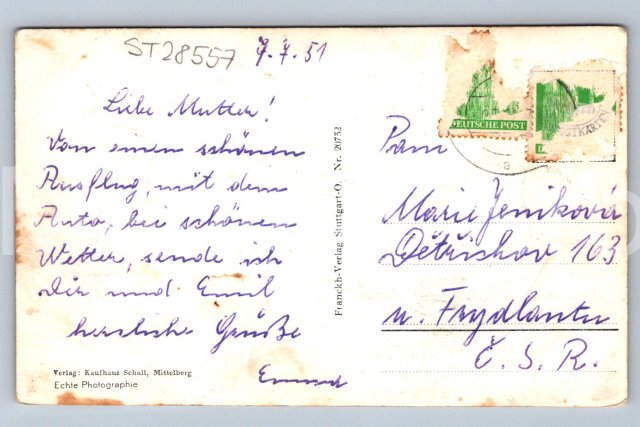 ST28557
7.7.51
Liebe Mutter!
Von einem schönen
Ausflug, mit dem
Auto, bei schönen
Wetter, sende ich
Dir und Emil
herzliche Grüße
Verlag: Kaufhaus Schall, Mittelberg
Echte Photographie
Franckh-Verlag Stuttgart-O. Nr. 20732
DEUTSCHE POST
Paní
Marie Jeniková
Dětřichov 163
u. Frydlantu
Č. S. R.